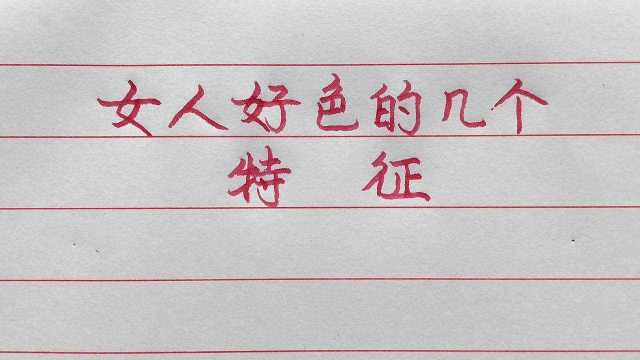 女人好色的几个
特征